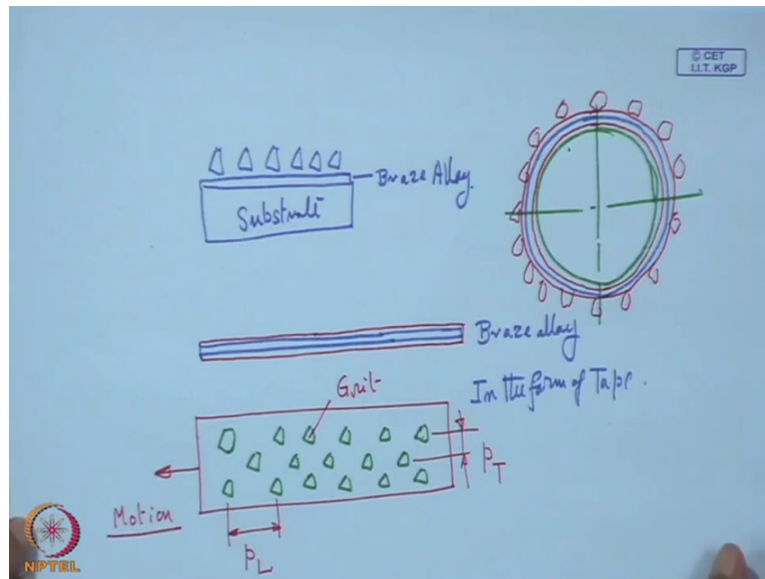 © CET
I.I.T. KGP
Braze Alloy
Substrate
Braze alloy
In the form of Tape.
Grit
PT
Motion
PL
NPTEL